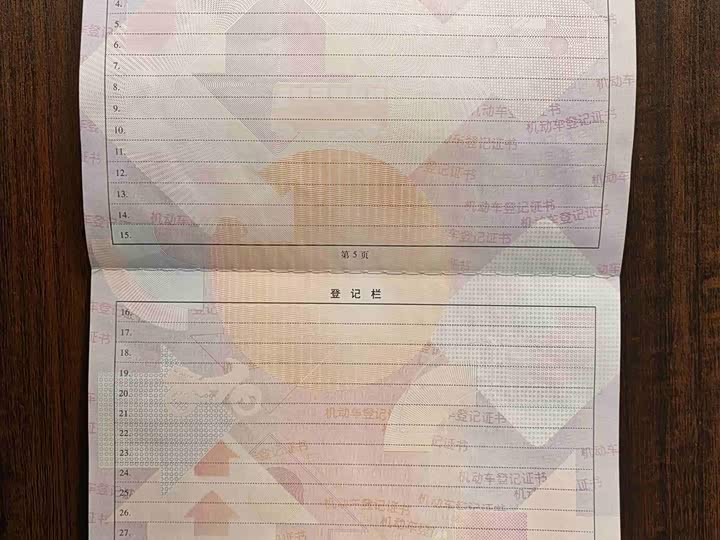 4.
5.
6.
7.
8.
9.
10.
11.
12.
13.
14.
15.
第 5 页
登 记 栏
16.
17.
18.
19.
20.
21.
22.
23.
24.
25.
26.
27.
机动车登记证书
机动车登记证书
登记证书
机动车登记证书
机动车登记证书
机动车登记证书
机动车登记证书
机动车登记证书